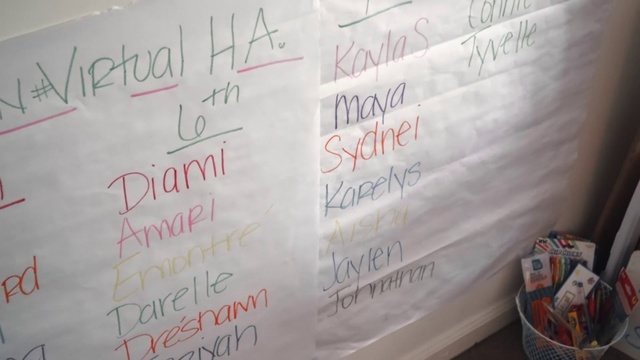 N#Virtual HA.
6th
Diami
Amari
Emontré
Darelle
Dre'shawn
Kayla S
Maya
Sydnei
Karelys
Aisha
Jaylen
Johnathan
Tyvelle